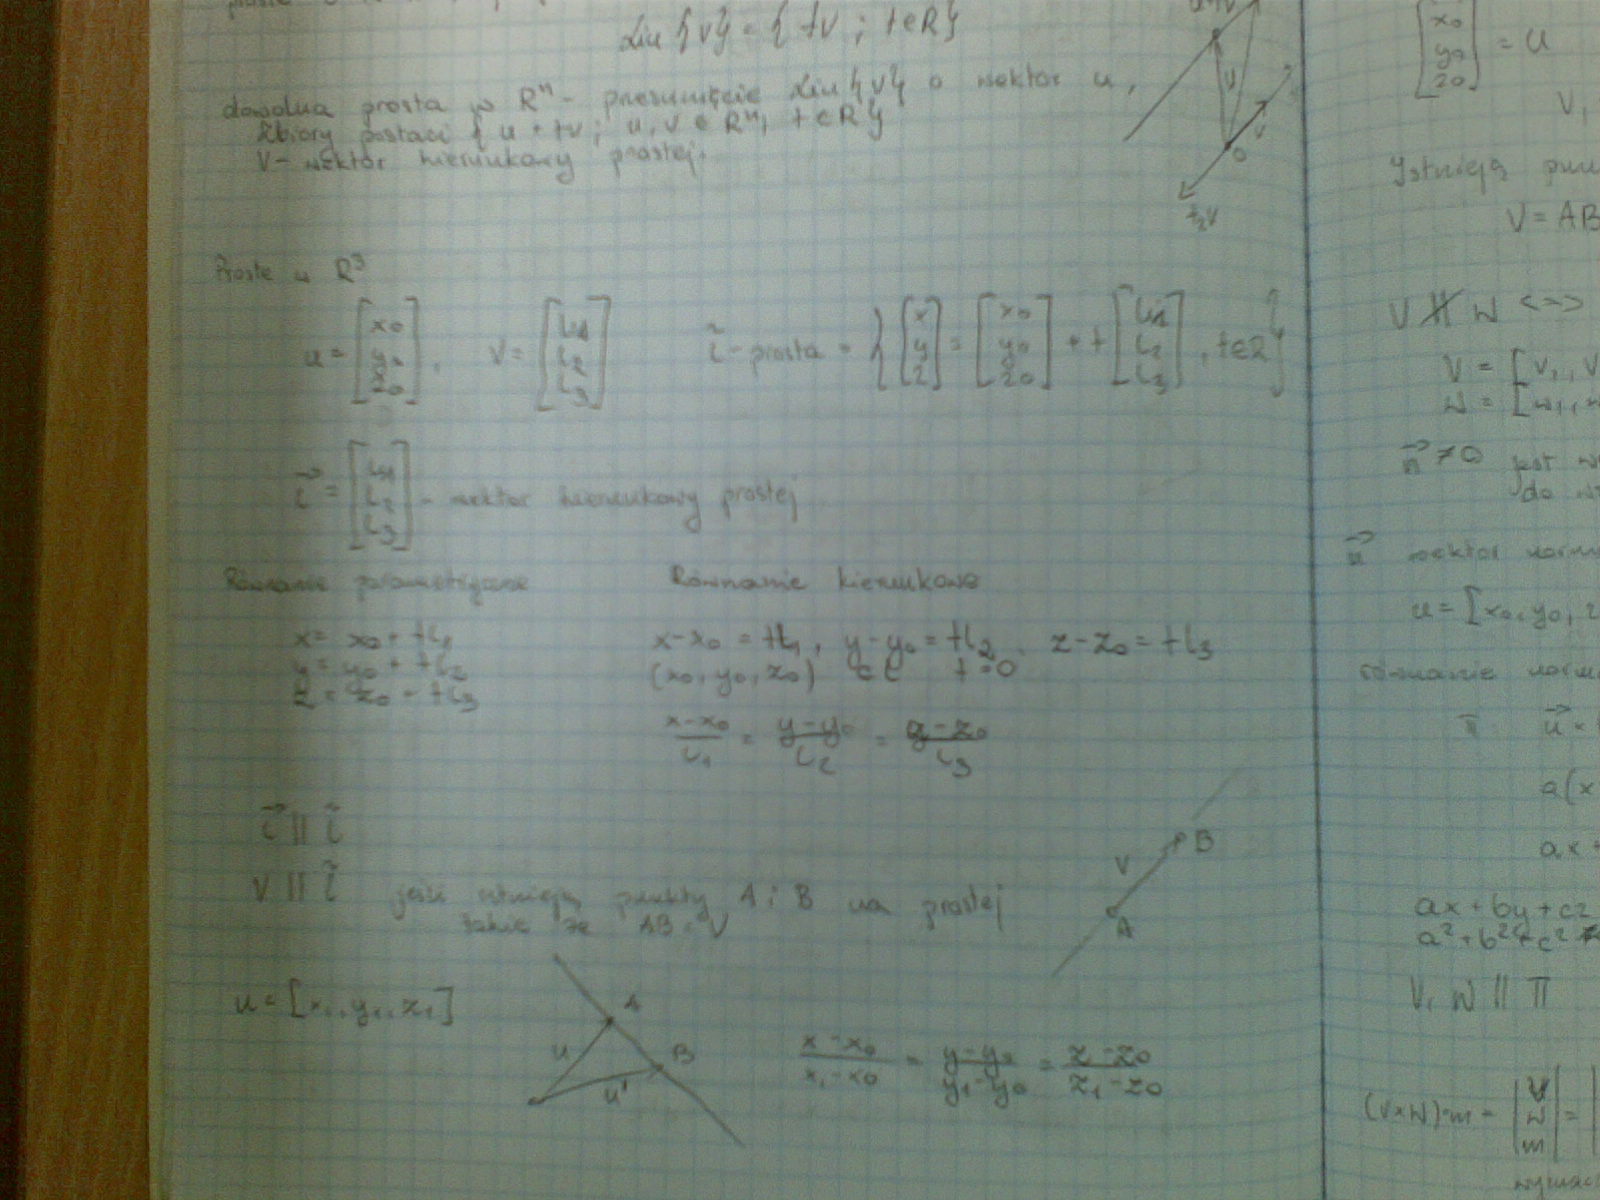 Lin {v} = { tv ; t∈R }
dowolna prosta w Rⁿ - przesunięcie Lin {v} o wektor u,
zbiory postaci { u + tv ; u, v ∈ Rⁿ, t ∈ R }
v - wektor kierunkowy prostej.
u
v
0
t₂v
Proste w R³
u = [x₀ y₀ z₀], v = [l₁ l₂ l₃] l̃ - prosta = { [x y z] = [x₀ y₀ z₀] + t [l₁ l₂ l₃], t∈R }
l⃗ = [l₁ l₂ l₃] - wektor kierunkowy prostej
Równanie parametryczne
x = x₀ + tl₁
y = y₀ + tl₂
z = z₀ + tl₃
Równanie kierunkowe
x-x₀ = tl₁, y-y₀ = tl₂, z-z₀ = tl₃
(x₀, y₀, z₀) ∈ l t=0
(x-x₀)/l₁ = (y-y₀)/l₂ = (z-z₀)/l₃
l⃗ || l̃
v || l̃ jeśli istnieją punkty A i B na prostej
takie że AB = v
A
v
B
u = [x₁, y₁, z₁]
A
B
u
u'
(x-x₀)/(x₁-x₀) = (y-y₀)/(y₁-y₀) = (z-z₀)/(z₁-z₀)
[x₀ y₀ z₀] = u
v,
Istnieją
v = AB
v ∦ w <=>
v = [v₁, v
w = [w₁, w
n⃗ ≠ 0 jest
do
wektor
u = [x₀, y₀, z
równanie
π
a(x
ax +
ax + by + cz
a² + b² + c² ≠
v, w || π
(v×w)·m = |v w m| =